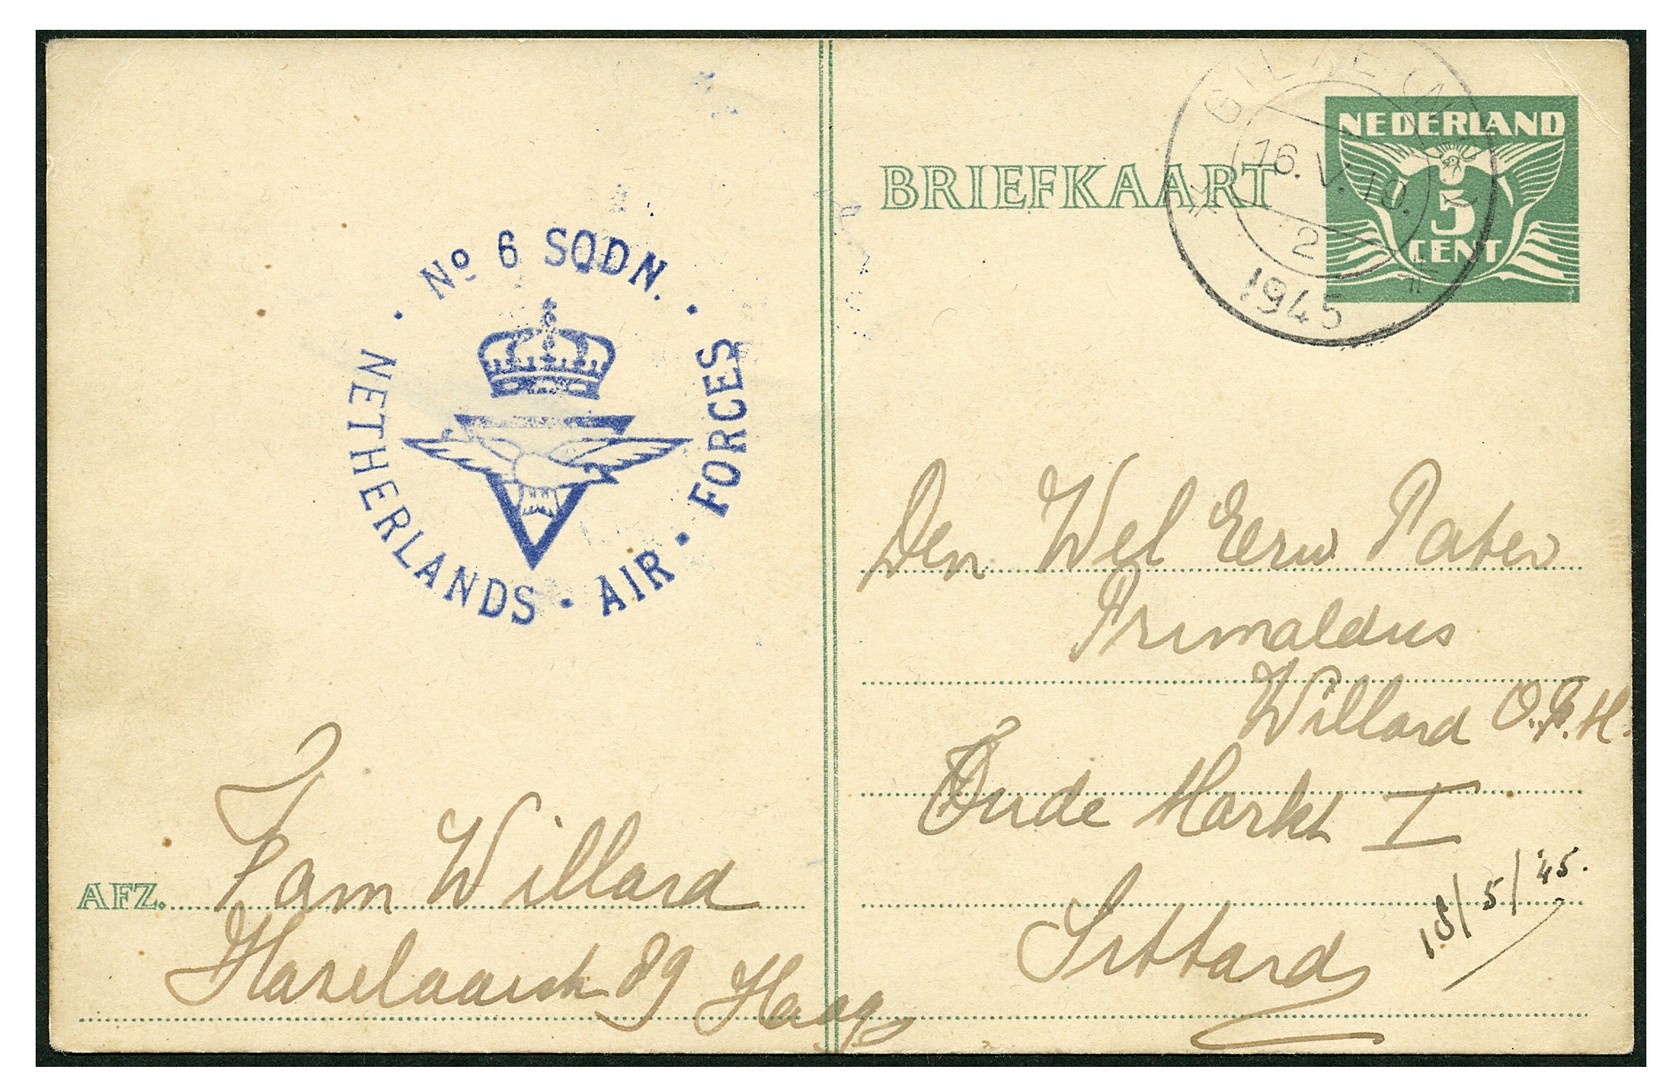 No 6 SQDN.
NETHERLANDS · AIR · FORCES
BRIEFKAART
NEDERLAND
5
CENT
16.V.10.
2
1945
Den Wel Eerw Pater
Primaldus
Willard O.F.M.
Oude Markt I
Sittard
18/5/'45.
AFZ. Fam Willard
89 Haag